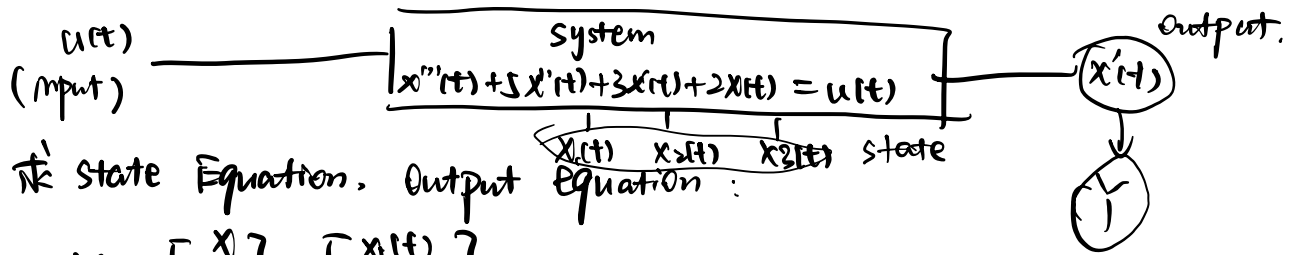 u(t)
(input)
system
x'''(t)+5x''(t)+3x'(t)+2x(t) = u(t)
output.
x'(t)
x₁(t) x₂(t) x₃(t) state
求 state Equation. Output equation:
Y